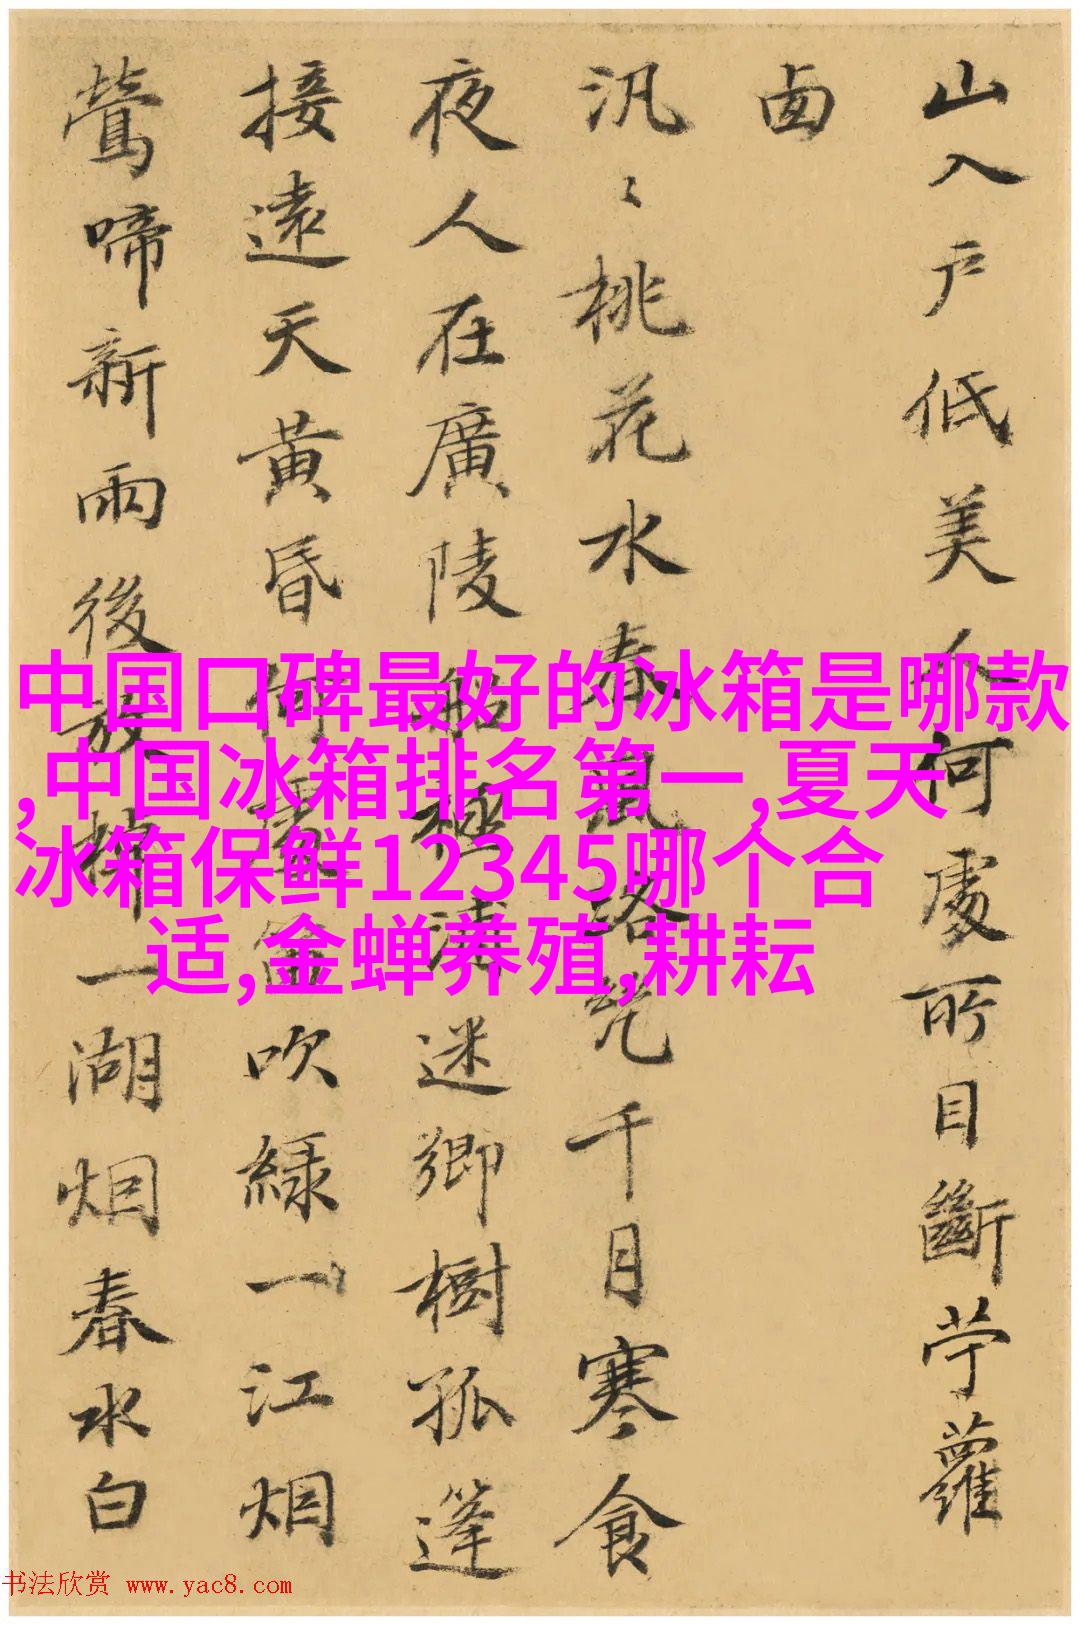 山入户低美人何處所目斷苧蘿
卤
汎〻桃花水春風千月寒食
夜人在廣陵船極浦迷鄉樹孤篷
接遠天黃昏何處笛吹綠一江烟
鶯啼新雨後放棹一湖烟春水白
中国口碑最好的冰箱是哪款
,中国冰箱排名第一,夏天
冰箱保鲜12345哪个合
适,金蝉养殖,耕耘
书法欣赏 www.yac8.com